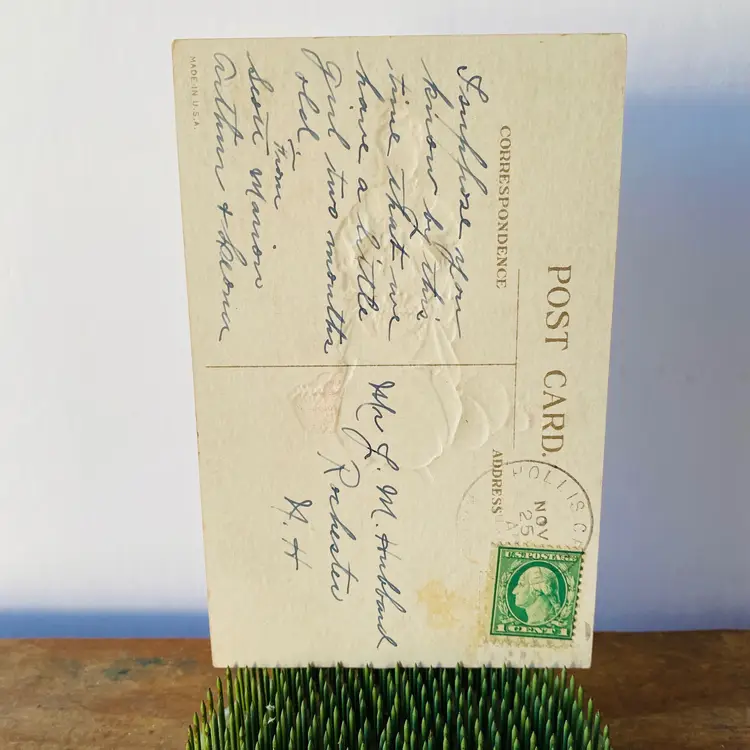 POST CARD.
CORRESPONDENCE
I suppose you
know by this
time that we
have a little
girl two months
old.
From
Scott Marion
Arthur & Leona
MADE IN U.S.A.
ADDRESS
Mr L. M. Hubbard
Rochester
N. H
HOLLIS CE
NOV
25
A
U.S. POSTAGE
1 CENT 1